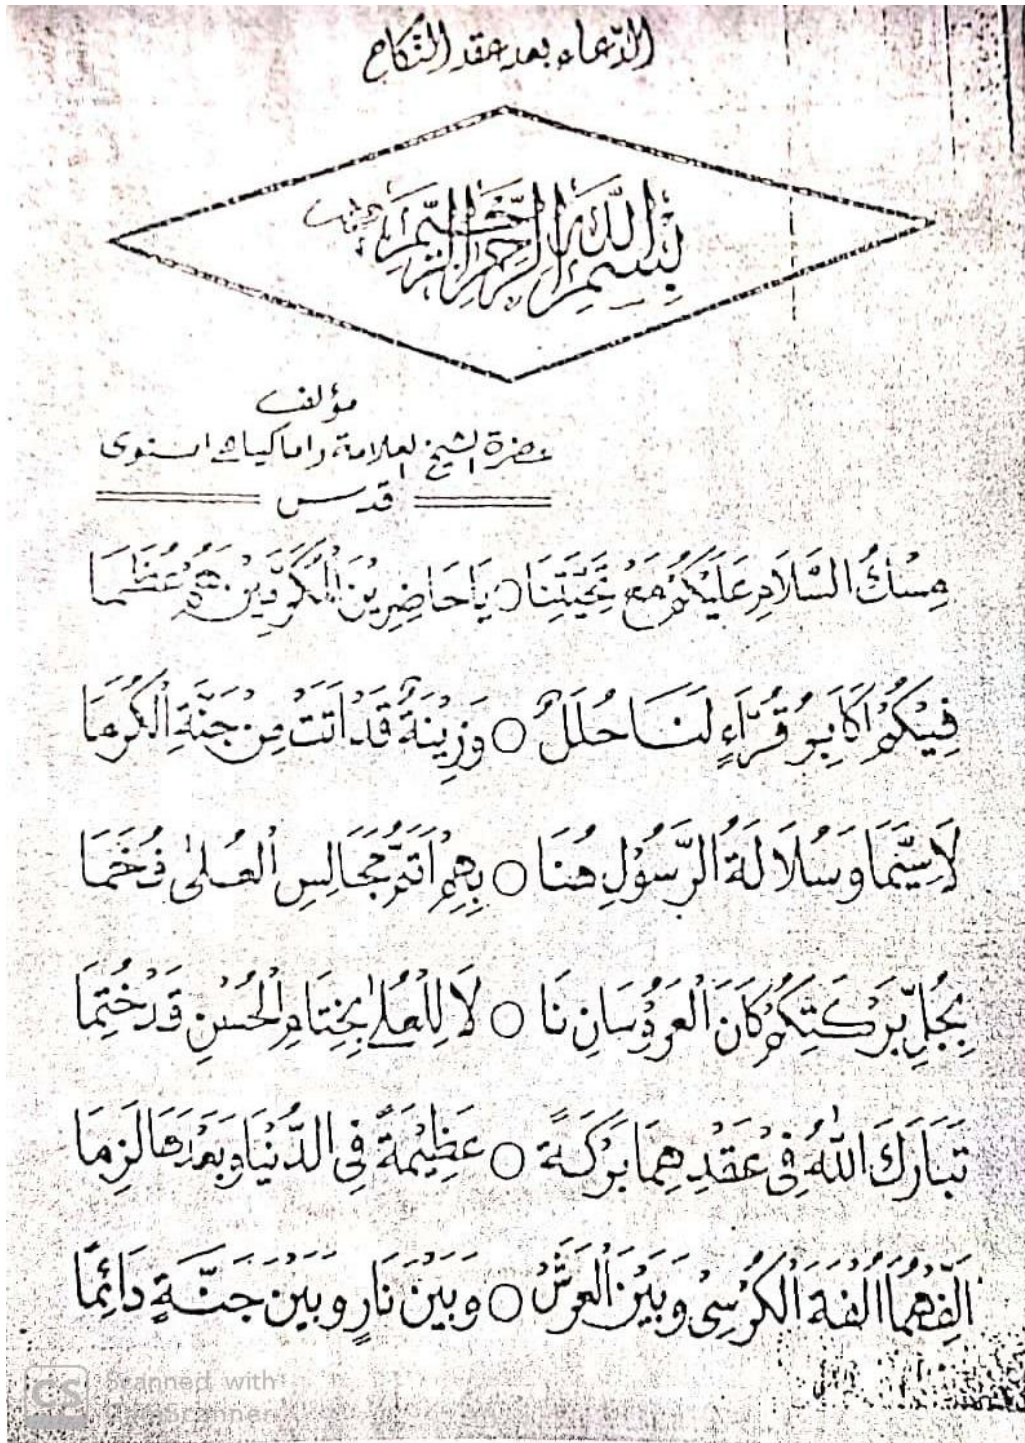 الدّعاء بعد عقد النّكاح
بِسْمِ اللّٰهِ الرَّحْمٰنِ الرَّحِيْمِ
مؤلف
حضرة الشيخ العلامة راما كياهي اسنوى
قدس
مِسْكُ السَّلَامِ عَلَيْكُمْ مَعْ تَحِيَّتِنَا ○ يَا حَاضِرِيْنَ الْمُكَرَّمِيْنَ هُمْ عُظَمَا
فِيْكُمْ اَكَابِرُ قُرَّاءٍ لَنَا حُلَلٌ ○ وَزِيْنَةٌ قَدْ اَتَتْ مِنْ جَنَّةِ الْكُرَمَا
لَاسِيَّمَا وَسُلَالَةُ الرَّسُوْلِ هُنَا ○ بِهِمْ اَتَمُّ مَجَالِسِ الْعُلٰى فُخَمَا
بِجُلِّ بَرْكَتِكُمْ كَانَ الْعَرُوْسَانِ نَا ○ لَا لِلْعُلٰى بِخِتَامِ الْحُسْنِ قَدْ خُتِمَا
تَبَارَكَ اللّٰهُ فِيْ عَقْدِهِمَا بَرْكَةً ○ عَظِيْمَةً فِي الدُّنْيَا وَبَعْدَهَا لَزِمَا
اَلِّفْهُمَا اُلْفَةَ الْكُرْسِيْ وَبَيْنَ الْعَرْشْ ○ وَبَيْنَ نَارٍ وَبَيْنَ جَنَّةٍ دَائِمًا
CS Scanned with
CamScanner